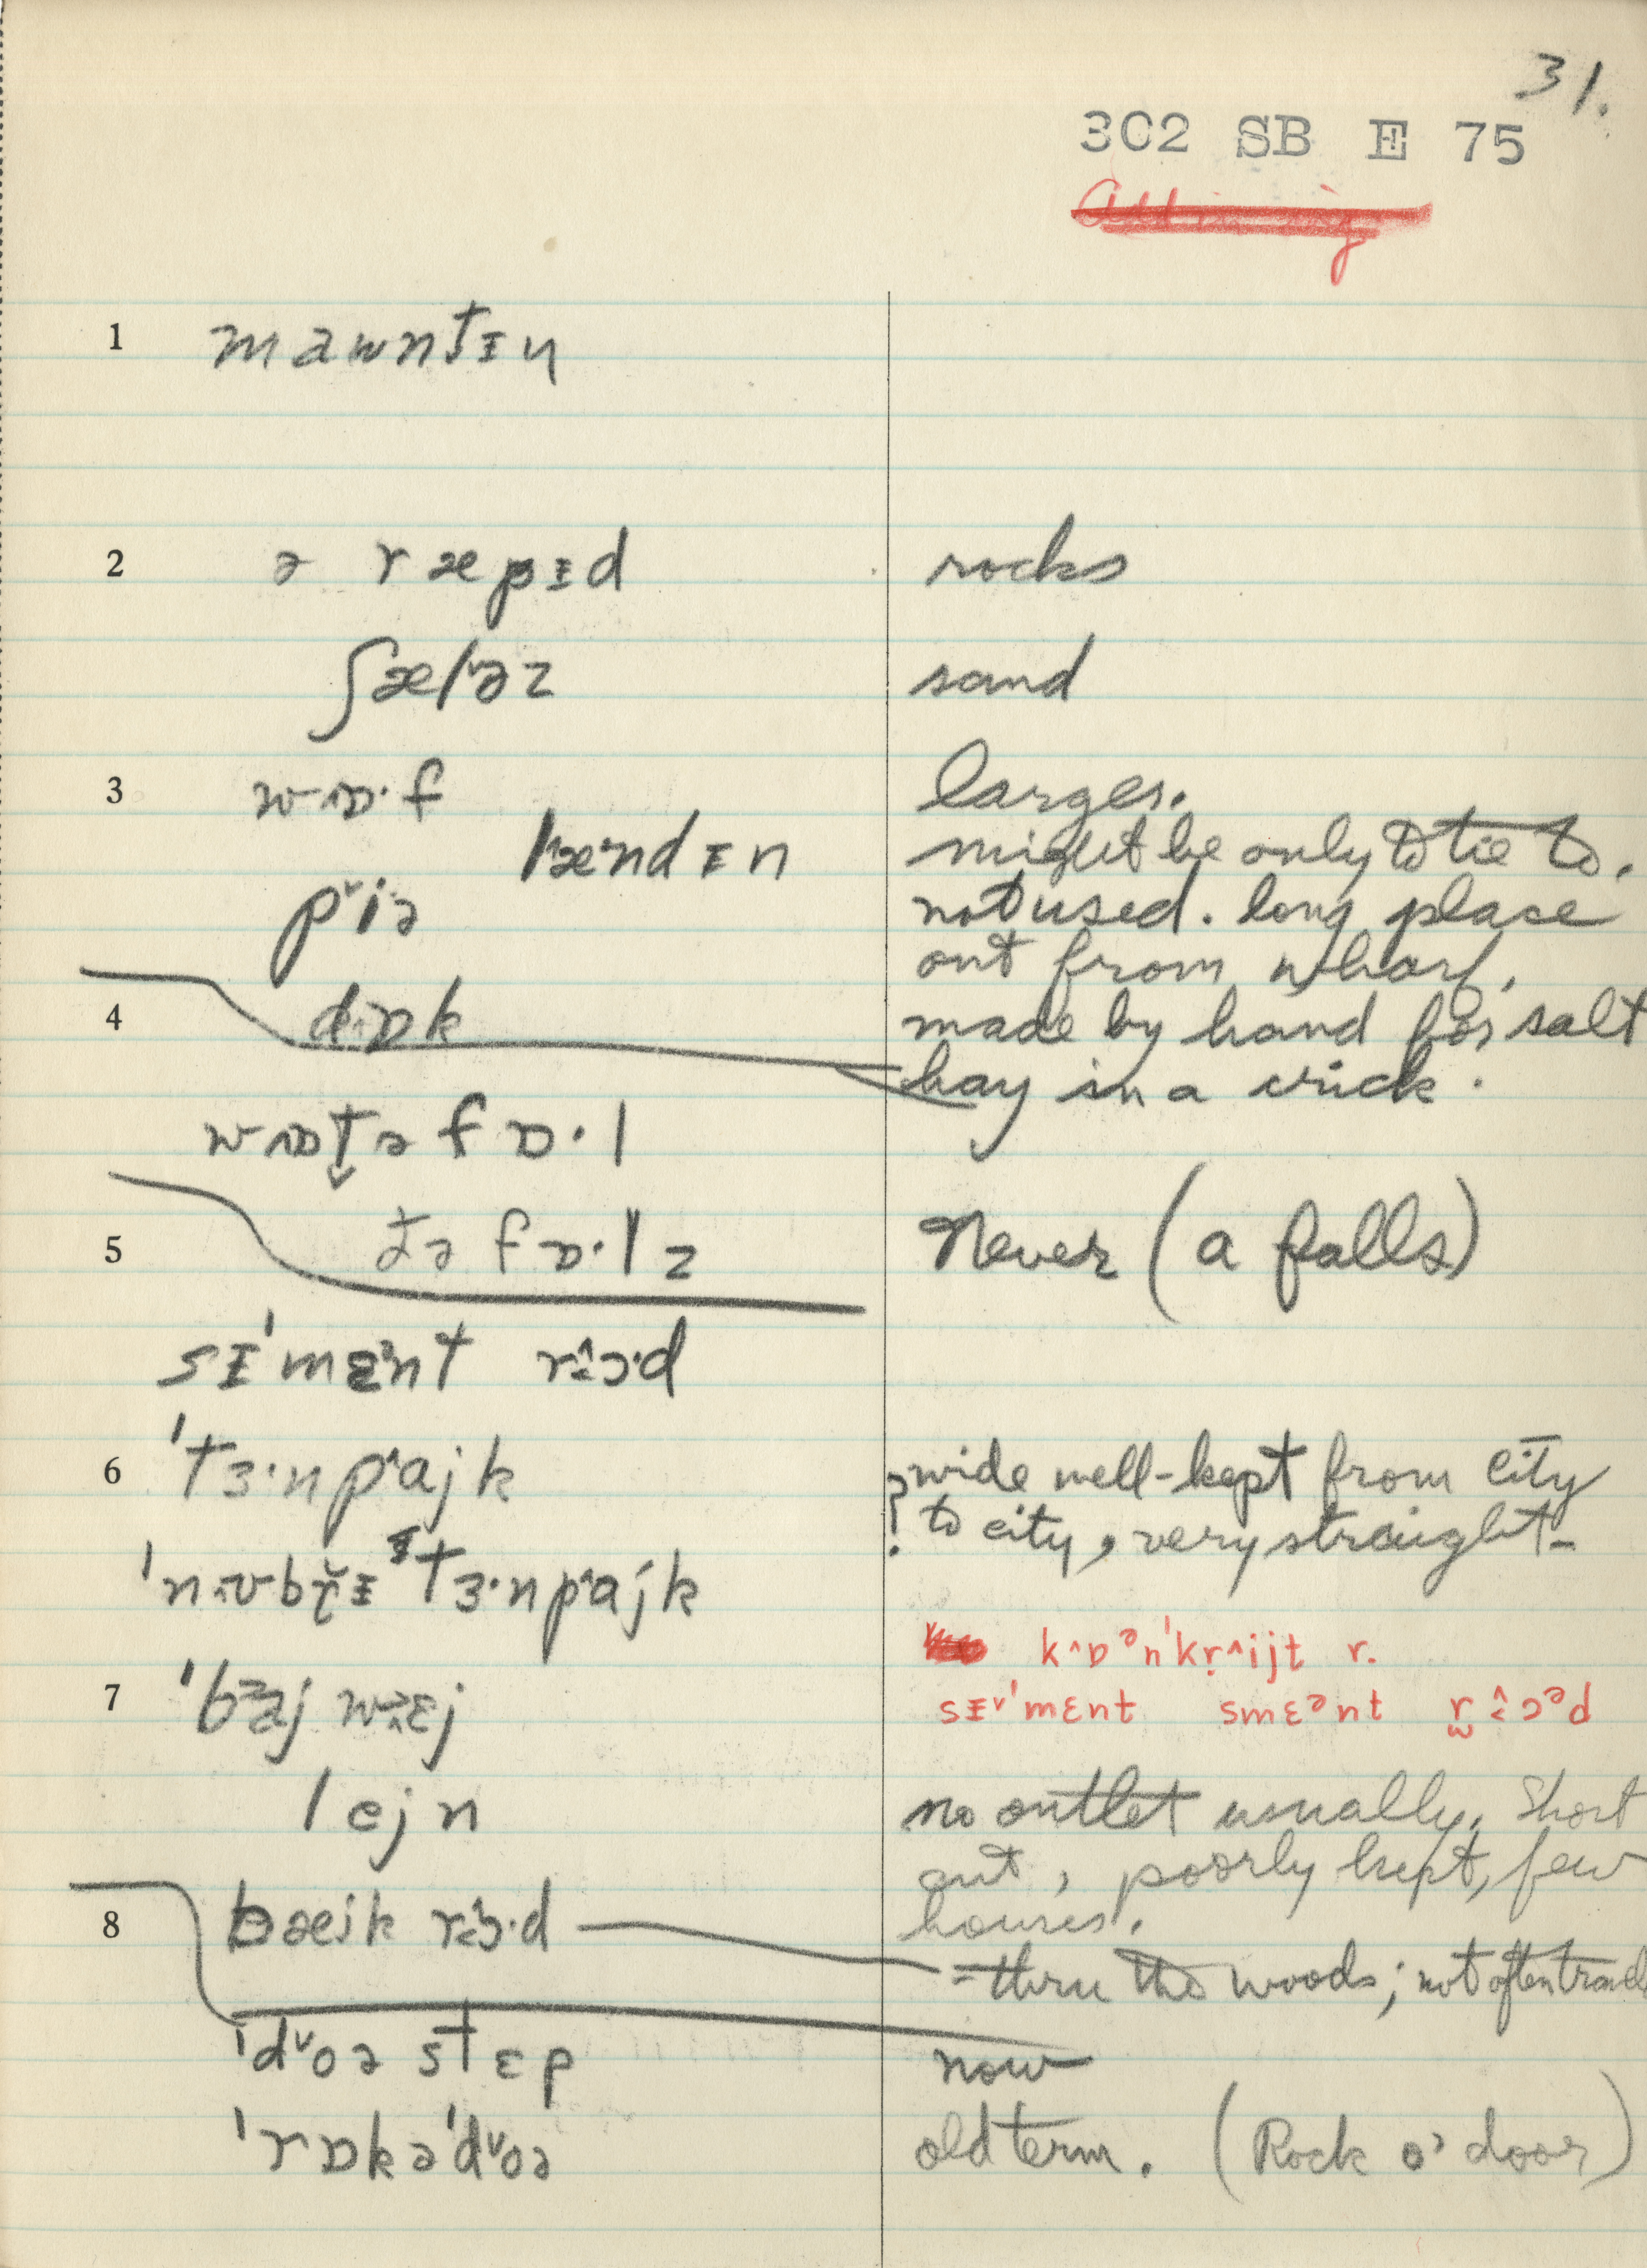 31.
302 SB E 75
1 mawntɪn
2 ə ræpɪd rocks
ʃælˇəz sand
3 w^ɒ·f larger.
lˆænˑdɪn might be only to tie to.
pˇiə not used. long place
out from wharf.
4 d^ɒk made by hand for salt
hay in a crick.
w^ɒt̬ə fɒ·l
5 ðə fɒ·lz Never (a falls)
sɪ'mɛᵊnt rɔ·d
6 'tɜ·npˆajk ? wide well-kept from city
to city, very straight-
'n^ʊbrɪ tɜ·npˆajk
kˆɒᵊn'krˆijt r.
7 'baj wɛj sɪˇ'mɛnt smɛᵊnt rɔᵊd
lejn no outlet usually. Short
cut, poorly kept, few
houses.
8 bæjk rɔ·d = thru the woods; not often
'dˇoə stɛp now
'rɒkə'dˇoə old term. (Rock o' door)